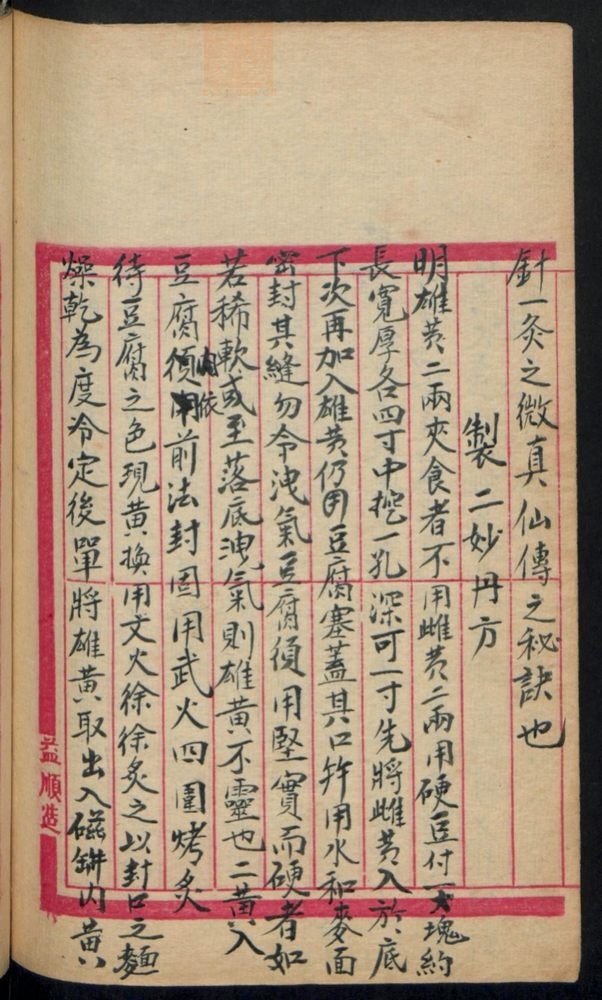 針一灸之微真仙傳之秘訣也
製二妙丹方
明雄黄二兩夾食者不用雌黄二兩用硬豆付一大塊約
長寬厚各四寸中挖一孔深可一寸先將雌黄入於底
下次再加入雄黄仍用豆腐塞蓋其口然用水和麥面
密封其縫勿令洩氣豆腐須用堅實而硬者如
若稀軟或至落底洩氣則雄黄不靈也二黄入
豆腐須内依前法封固用武火四圍烤炙
待豆腐之色現黄換用文火徐徐炙之以封口之麵
燥乾為度冷定後單將雄黄取出入磁缾内黄
益順造